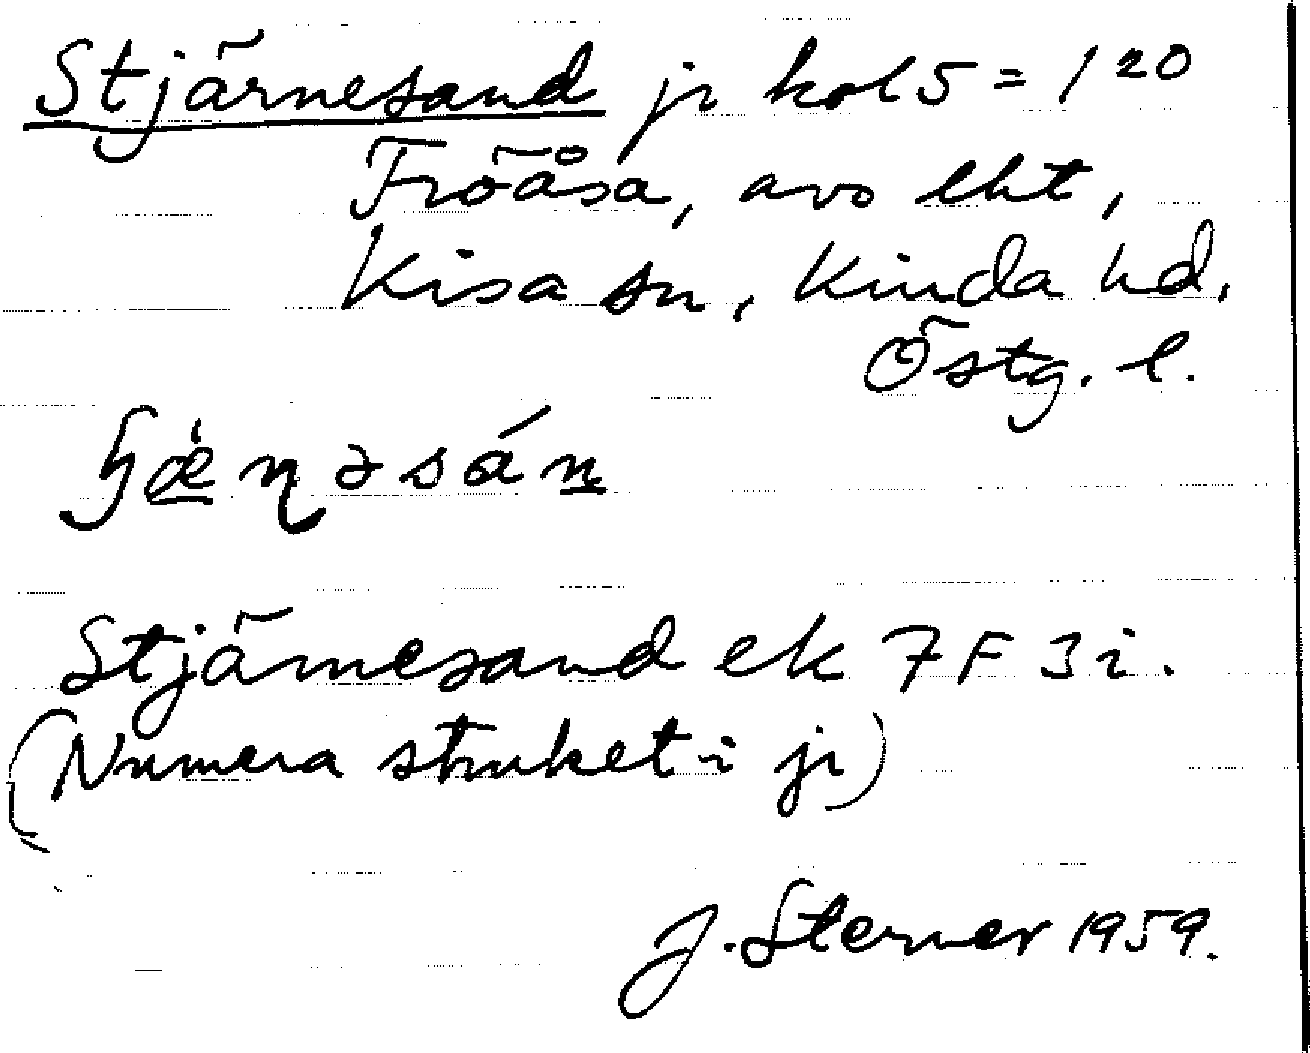 Stjärnesand jr kol 5 = 120
Fröåsa, avs eht,
Kisa sn, Kinda hd,
Östg. l.
Stjärnesand ek 7F 3i.
(Numera struket i jr)
J. Sterner 1959.